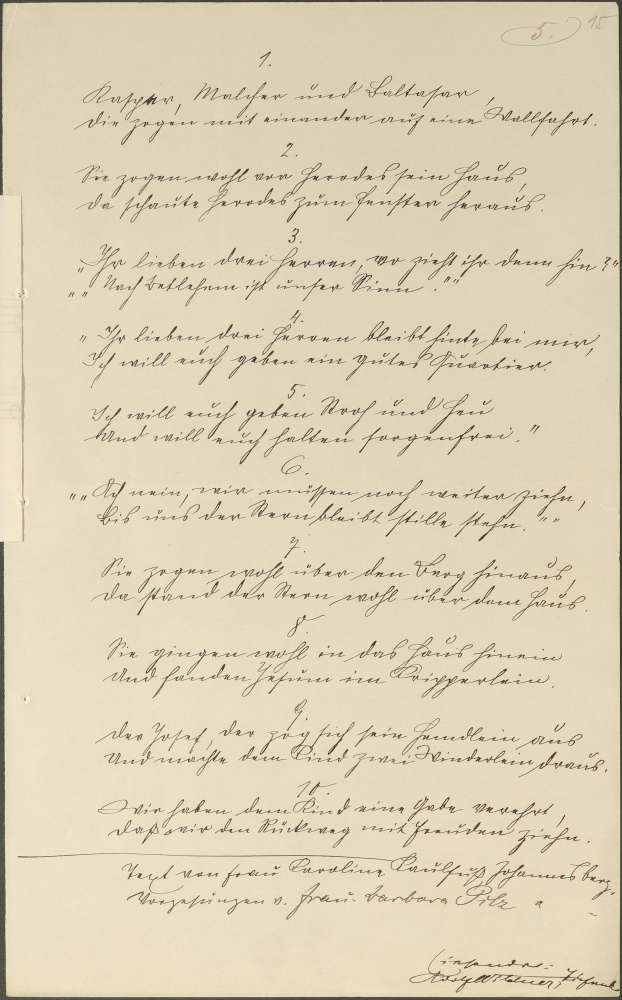 5. 15
1.
Kaspar, Malcher und Baltasar,
Die zogen mit einander auf eine Wallfahrt.
2.
Sie zogen wohl vor Herodes sein Haus,
Da schaute Herodes zum Fenster heraus.
3.
„Ihr lieben drei Herren, wo zieht ihr denn hin?"
„„Nach Betlehem ist unser Sinn.""
4.
„Ihr lieben drei Herren bleibt hinte bei mir,
Ich will euch geben ein gutes Quartier.
5.
Ich will euch geben Stroh und Heu
Und will euch halten sorgenfrei."
6.
„„Ach nein, wir müssen noch weiter ziehn,
Bis uns der Stern bleibt stille stehn.""
7.
Sie zogen wohl über den Berg hinaus,
Da stand der Stern wohl über dem Haus.
8.
Sie gingen wohl in das Haus hinein
Und fanden Jesum im Kripperlein.
9.
Der Josef, der zog sich sein Hemdlein aus
Und machte dem Kind zwei Winderlein draus.
10.
Wir haben dem Kind eine Gabe verehrt,
Daß wir den Rückweg mit Freuden ziehn.
Text von Frau Karoline Kaulfuß Johannesberg.
Vorgesungen v. Frau Barbara Pilz
Einsender:
Adolf Wildner,